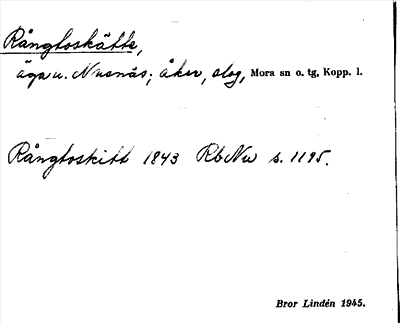 Rångtoskätte,
äga u. Nusnäs; åker, slog, Mora sn o. tg, Kopp. l.
Rångtoskitt 1843 RbNu s. 1195.
Bror Lindén 1945.